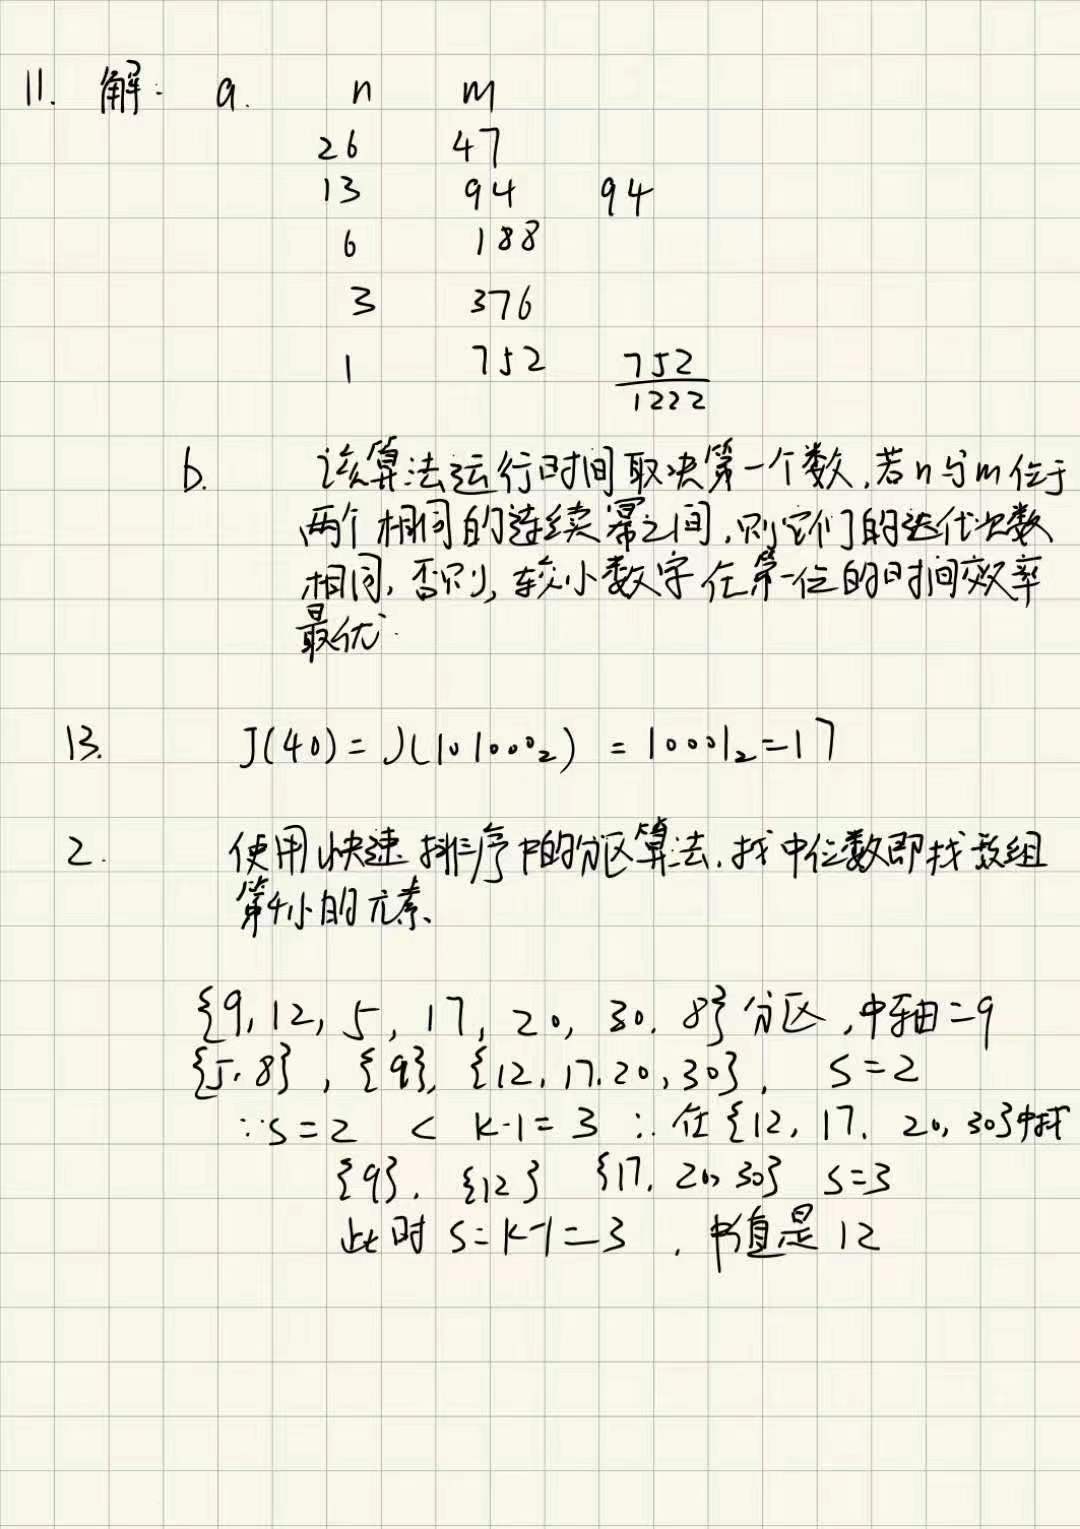 11. 解: a. n m
26 47
13 94 94
6 188
3 376
1 752 752
1222
b. 该算法运行时间取决第一个数,若n与m位于
两个相同的连续幂之间,则它们的迭代次数
相同,否则,较小数字在第一位的时间效率
最优.
13. J(40)=J(101000₂)=10001₂=17
2. 使用快速排序中的分区算法,找中位数即找数组
第4小的元素、
{9,12,5,17,20,30,8}分区,中轴=9
{5,8},{9},{12,17.20,30}, S=2
∵S=2 < k-1=3 ∴在{12,17.20,30}中找
{9}.{12} {17.20,30} S=3
此时 S=k-1=3 ,中值是12